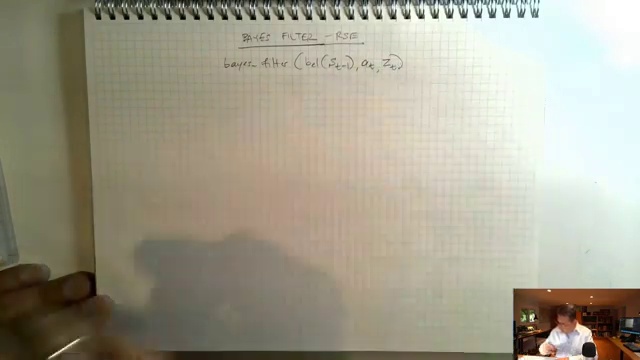 BAYES FILTER - RSE
bayes_filter (bel(S_{t-1}), a_t, z_t)